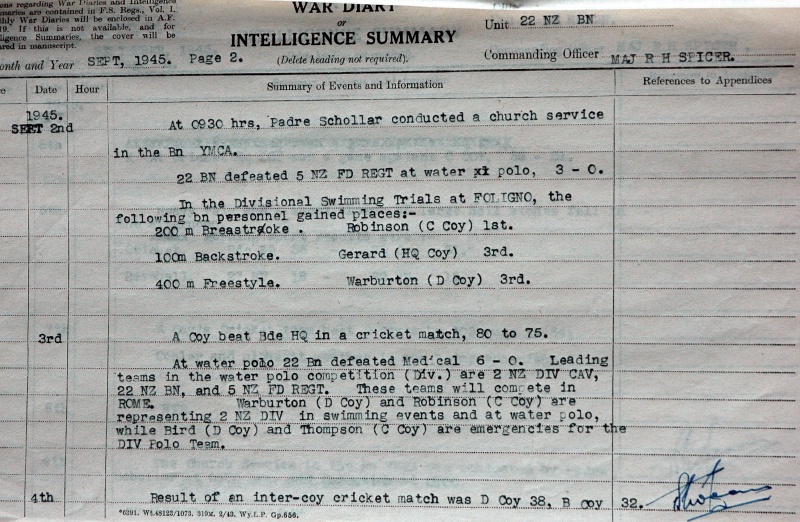 ons regarding War Diaries and Intelligence
maries are contained in F.S. Regs., Vol. I.
hly War Diaries will be enclosed in A.F.
19. If this is not available, and for
lligence Summaries, the cover will be
ared in manuscript.
WAR DIARY
or
INTELLIGENCE SUMMARY
(Delete heading not required).
Unit 22 NZ BN
Commanding Officer MAJ R H SPICER.
onth and Year SEPT, 1945. Page 2.
e Date Hour Summary of Events and Information References to Appendices
1945.
SEPT 2nd
At 0930 hrs, Padre Schollar conducted a church service
in the Bn YMCA.
22 BN defeated 5 NZ FD REGT at water polo, 3 - 0.
In the Divisional Swimming Trials at FOLIGNO, the
following bn personnel gained places:-
200 m Breastroke . Robinson (C Coy) 1st.
100m Backstroke. Gerard (HQ Coy) 3rd.
400 m Freestyle. Warburton (D Coy) 3rd.
3rd A Coy beat Bde HQ in a cricket match, 80 to 75.
At water polo 22 Bn defeated Medical 6 - 0. Leading
teams in the water polo competition (Div.) are 2 NZ DIV CAV,
22 NZ BN, and 5 NZ FD REGT. These teams will compete in
ROME. Warburton (D Coy) and Robinson (C Coy) are
representing 2 NZ DIV in swimming events and at water polo,
while Bird (D Coy) and Thompson (C Coy) are emergencies for the
DIV Polo Team.
4th Result of an inter-coy cricket match was D Coy 38, B coy 32.
*6391. Wt.48123/1073. 319M. 2/43. Wy.L.P. Gp.656.